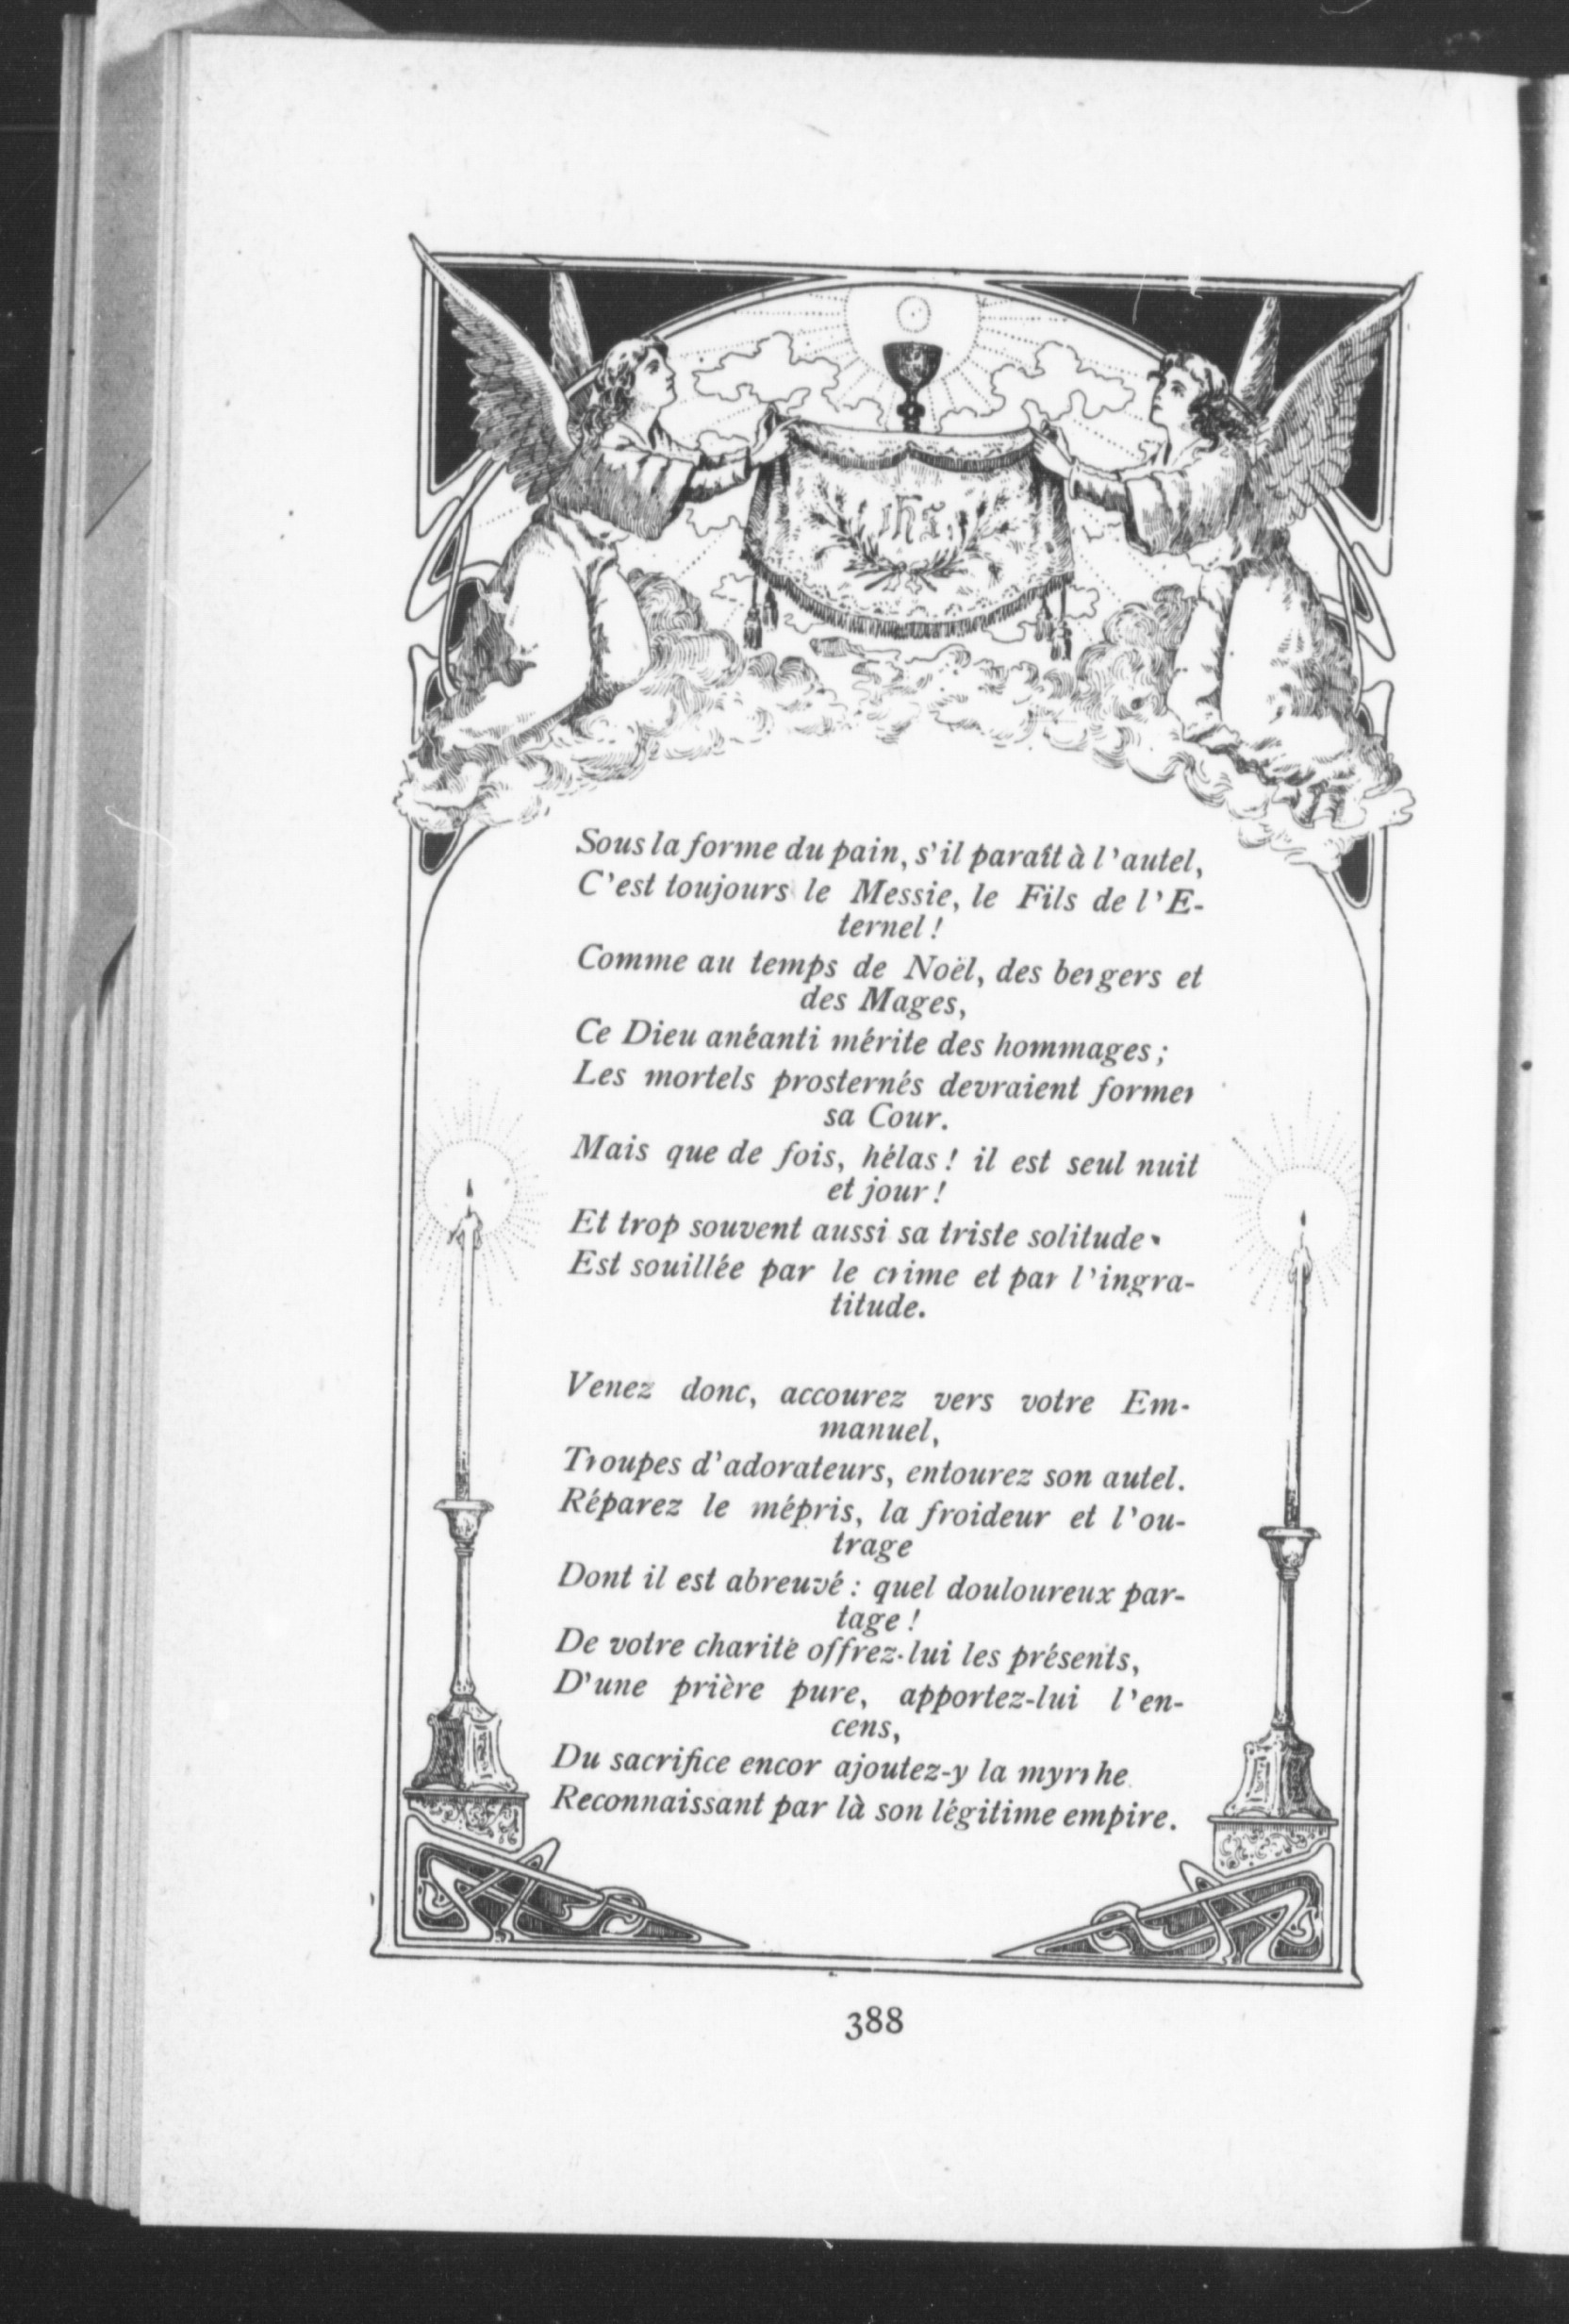 ihs.
Sous la forme du pain, s'il paraît à l'autel,
C'est toujours le Messie, le Fils de l'E-
ternel !
Comme au temps de Noël, des bergers et
des Mages,
Ce Dieu anéanti mérite des hommages ;
Les mortels prosternés devraient former
sa Cour.
Mais que de fois, hélas ! il est seul nuit
et jour !
Et trop souvent aussi sa triste solitude
Est souillée par le crime et par l'ingra-
titude.
Venez donc, accourez vers votre Em-
manuel,
Troupes d'adorateurs, entourez son autel.
Réparez le mépris, la froideur et l'ou-
trage
Dont il est abreuvé : quel douloureux par-
tage !
De votre charité offrez-lui les présents,
D'une prière pure, apportez-lui l'en-
cens,
Du sacrifice encor ajoutez-y la myrrhe
Reconnaissant par là son légitime empire.
388